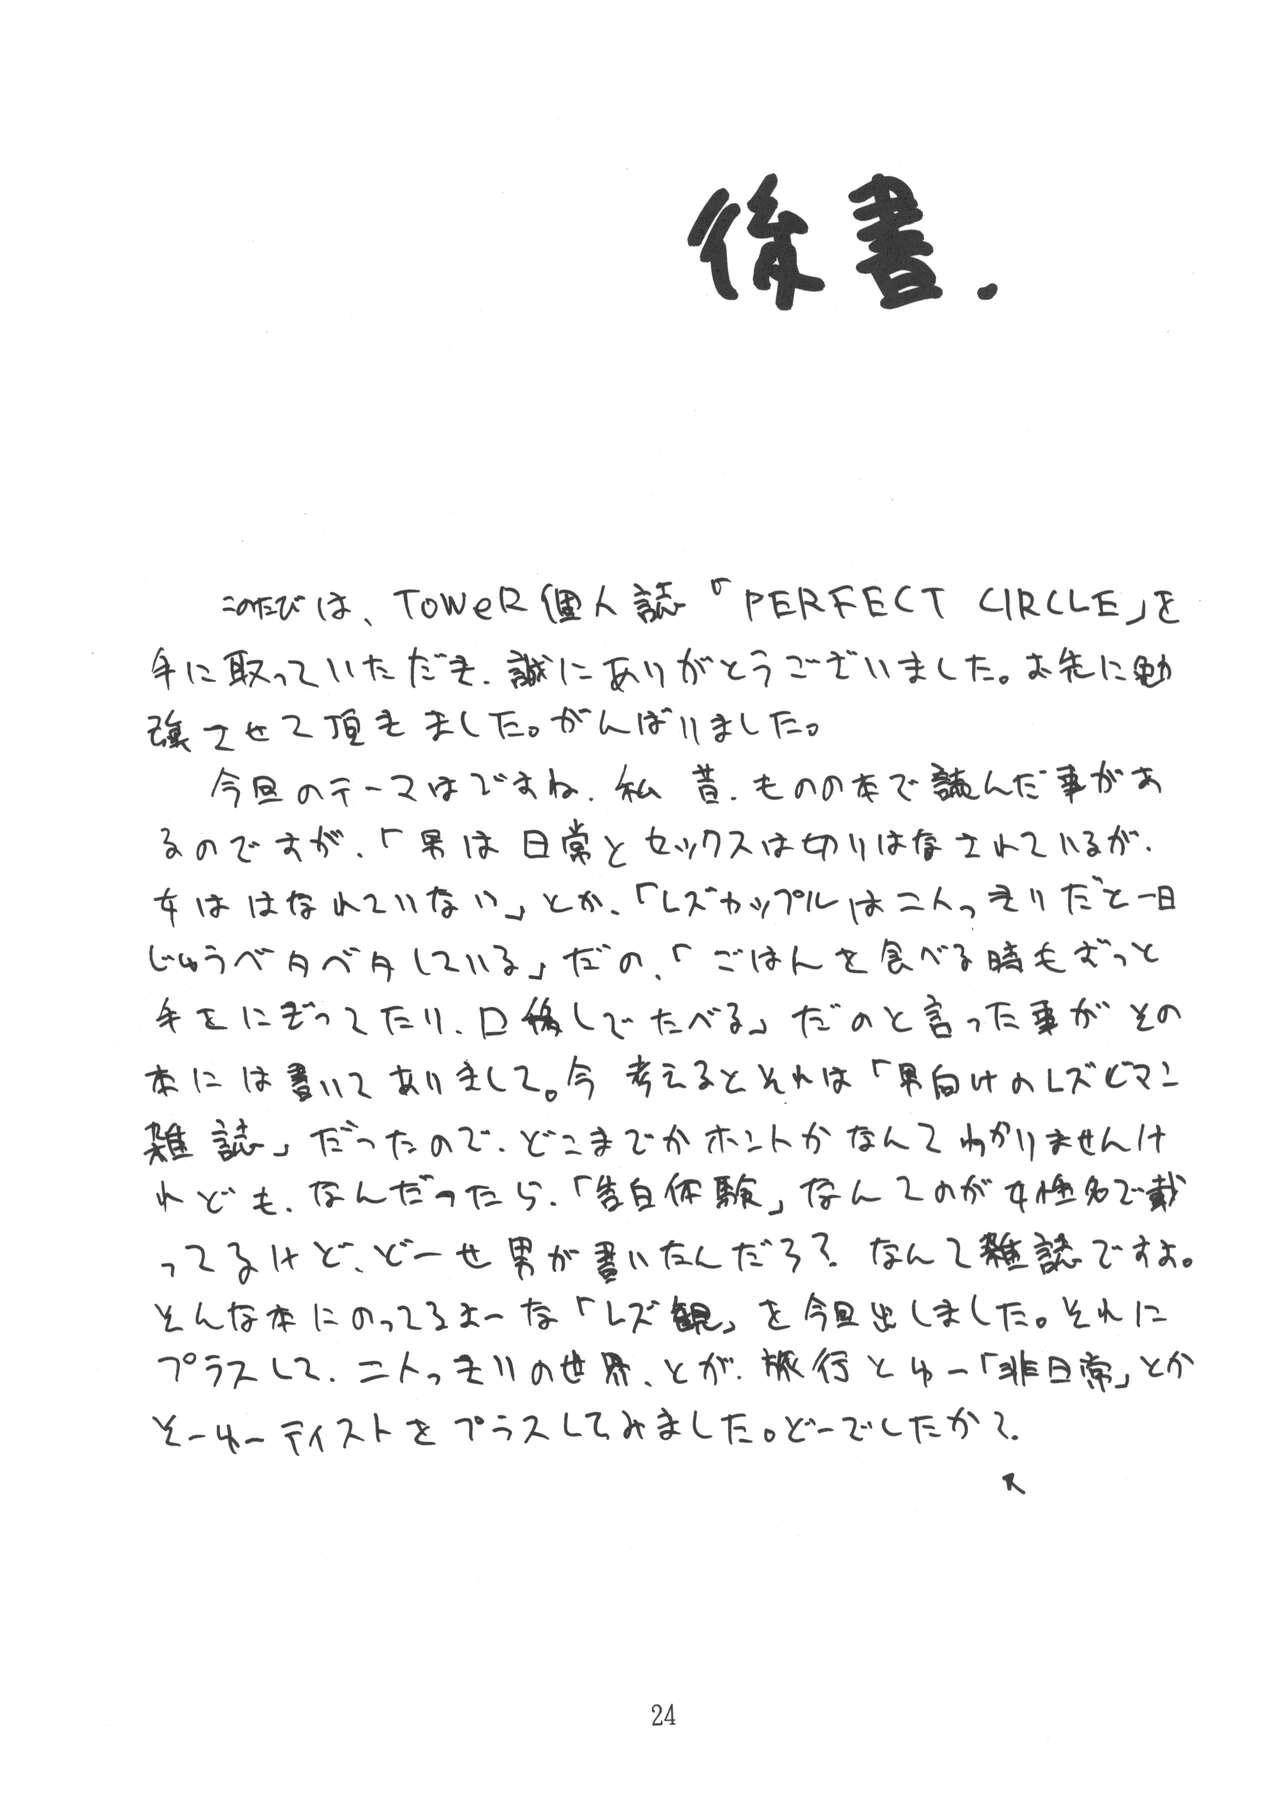 後書.
このたびは、ToWeR個人誌「PERFECT CIRCLE」を
手に取っていただき、誠にありがとうございました。お先に勉
強させて頂きました。がんばりました。
今回のテーマはですね、私 昔、ものの本で読んだ事があ
るのですが、「男は日常とセックスは切りはなされているが、
女ははなれていない」とか、「レズカップルは二人っきりだと一日
じゅうベタベタしている」だの、「ごはんを食べる時もずっと
手をにぎってたり、口移しでたべる」だのと言った事がその
本には書いてありまして。今 考えるとそれは「男向けのレズビマン
雑誌」だったので、どこまでがホントかなんてわかりませんけ
れども、なんだったら、「告白体験」なんてのが女性名で載
ってるけど、どーせ男が書いたんだろ？なんて雑誌ですよ。
そんな本にのってるよーな「レズ観」を今回出しました。それに
プラスして、二人っきりの世界、とか、旅行とゆー「非日常」とか
そーゆーテイストをプラスしてみました。どーでしたか？
24